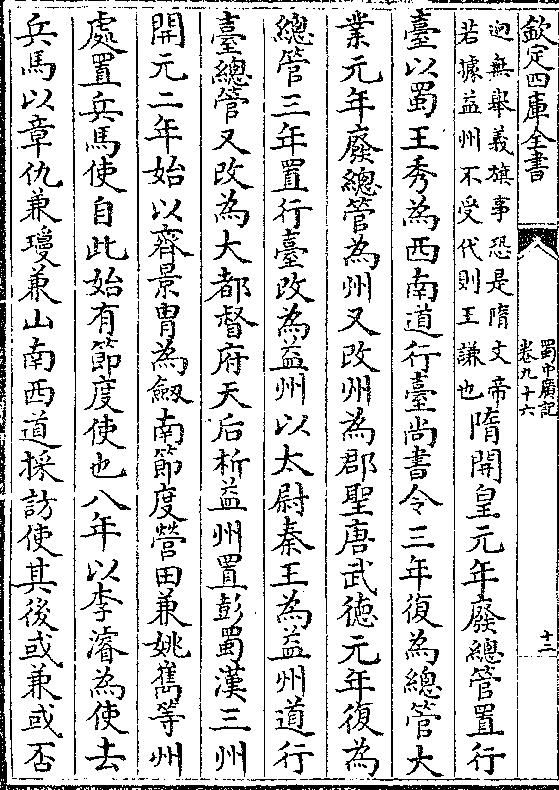 欽定四庫全書
蜀中廣記
卷九十六
十二
迥無舉義旗事恐是隋文帝
若據益州不受代則王謙也
隋開皇元年廢總管置行
臺以蜀王秀為西南道行臺尚書令三年復為總管大
業元年廢總管為州又改州為郡聖唐武徳元年復為
總管三年置行臺改為益州以太尉秦王為益州道行
臺總管又改為大都督府天后析益州置彭蜀漢三州
開元二年始以齊景胄為劔南節度營田兼姚嶲等州
處置兵馬使自此始有節度使也八年以李濬為使去
兵馬以章仇兼瓊兼山南西道採訪使其後或兼或否